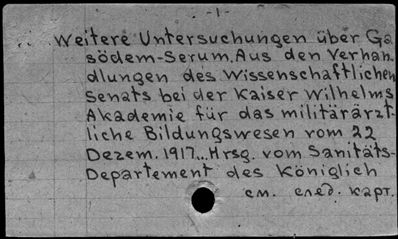 -1-
Weitere Untersuchungen über Ga
södem-Serum. Aus den Verhan
dlungen des Wissenschaftlichen
Senats bei der Kaiser Wilhelms
Akademie für das militärärzt-
liche Bildungswesen vom 22
Dezem. 1917... Hrsg. vom Sanitäts-
Departement des Königlich
см. след. карт.